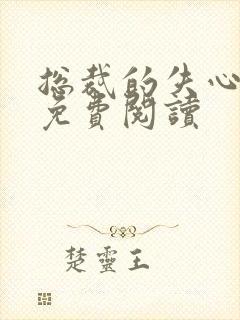 总裁的失心
免費閱讀
楚靈王